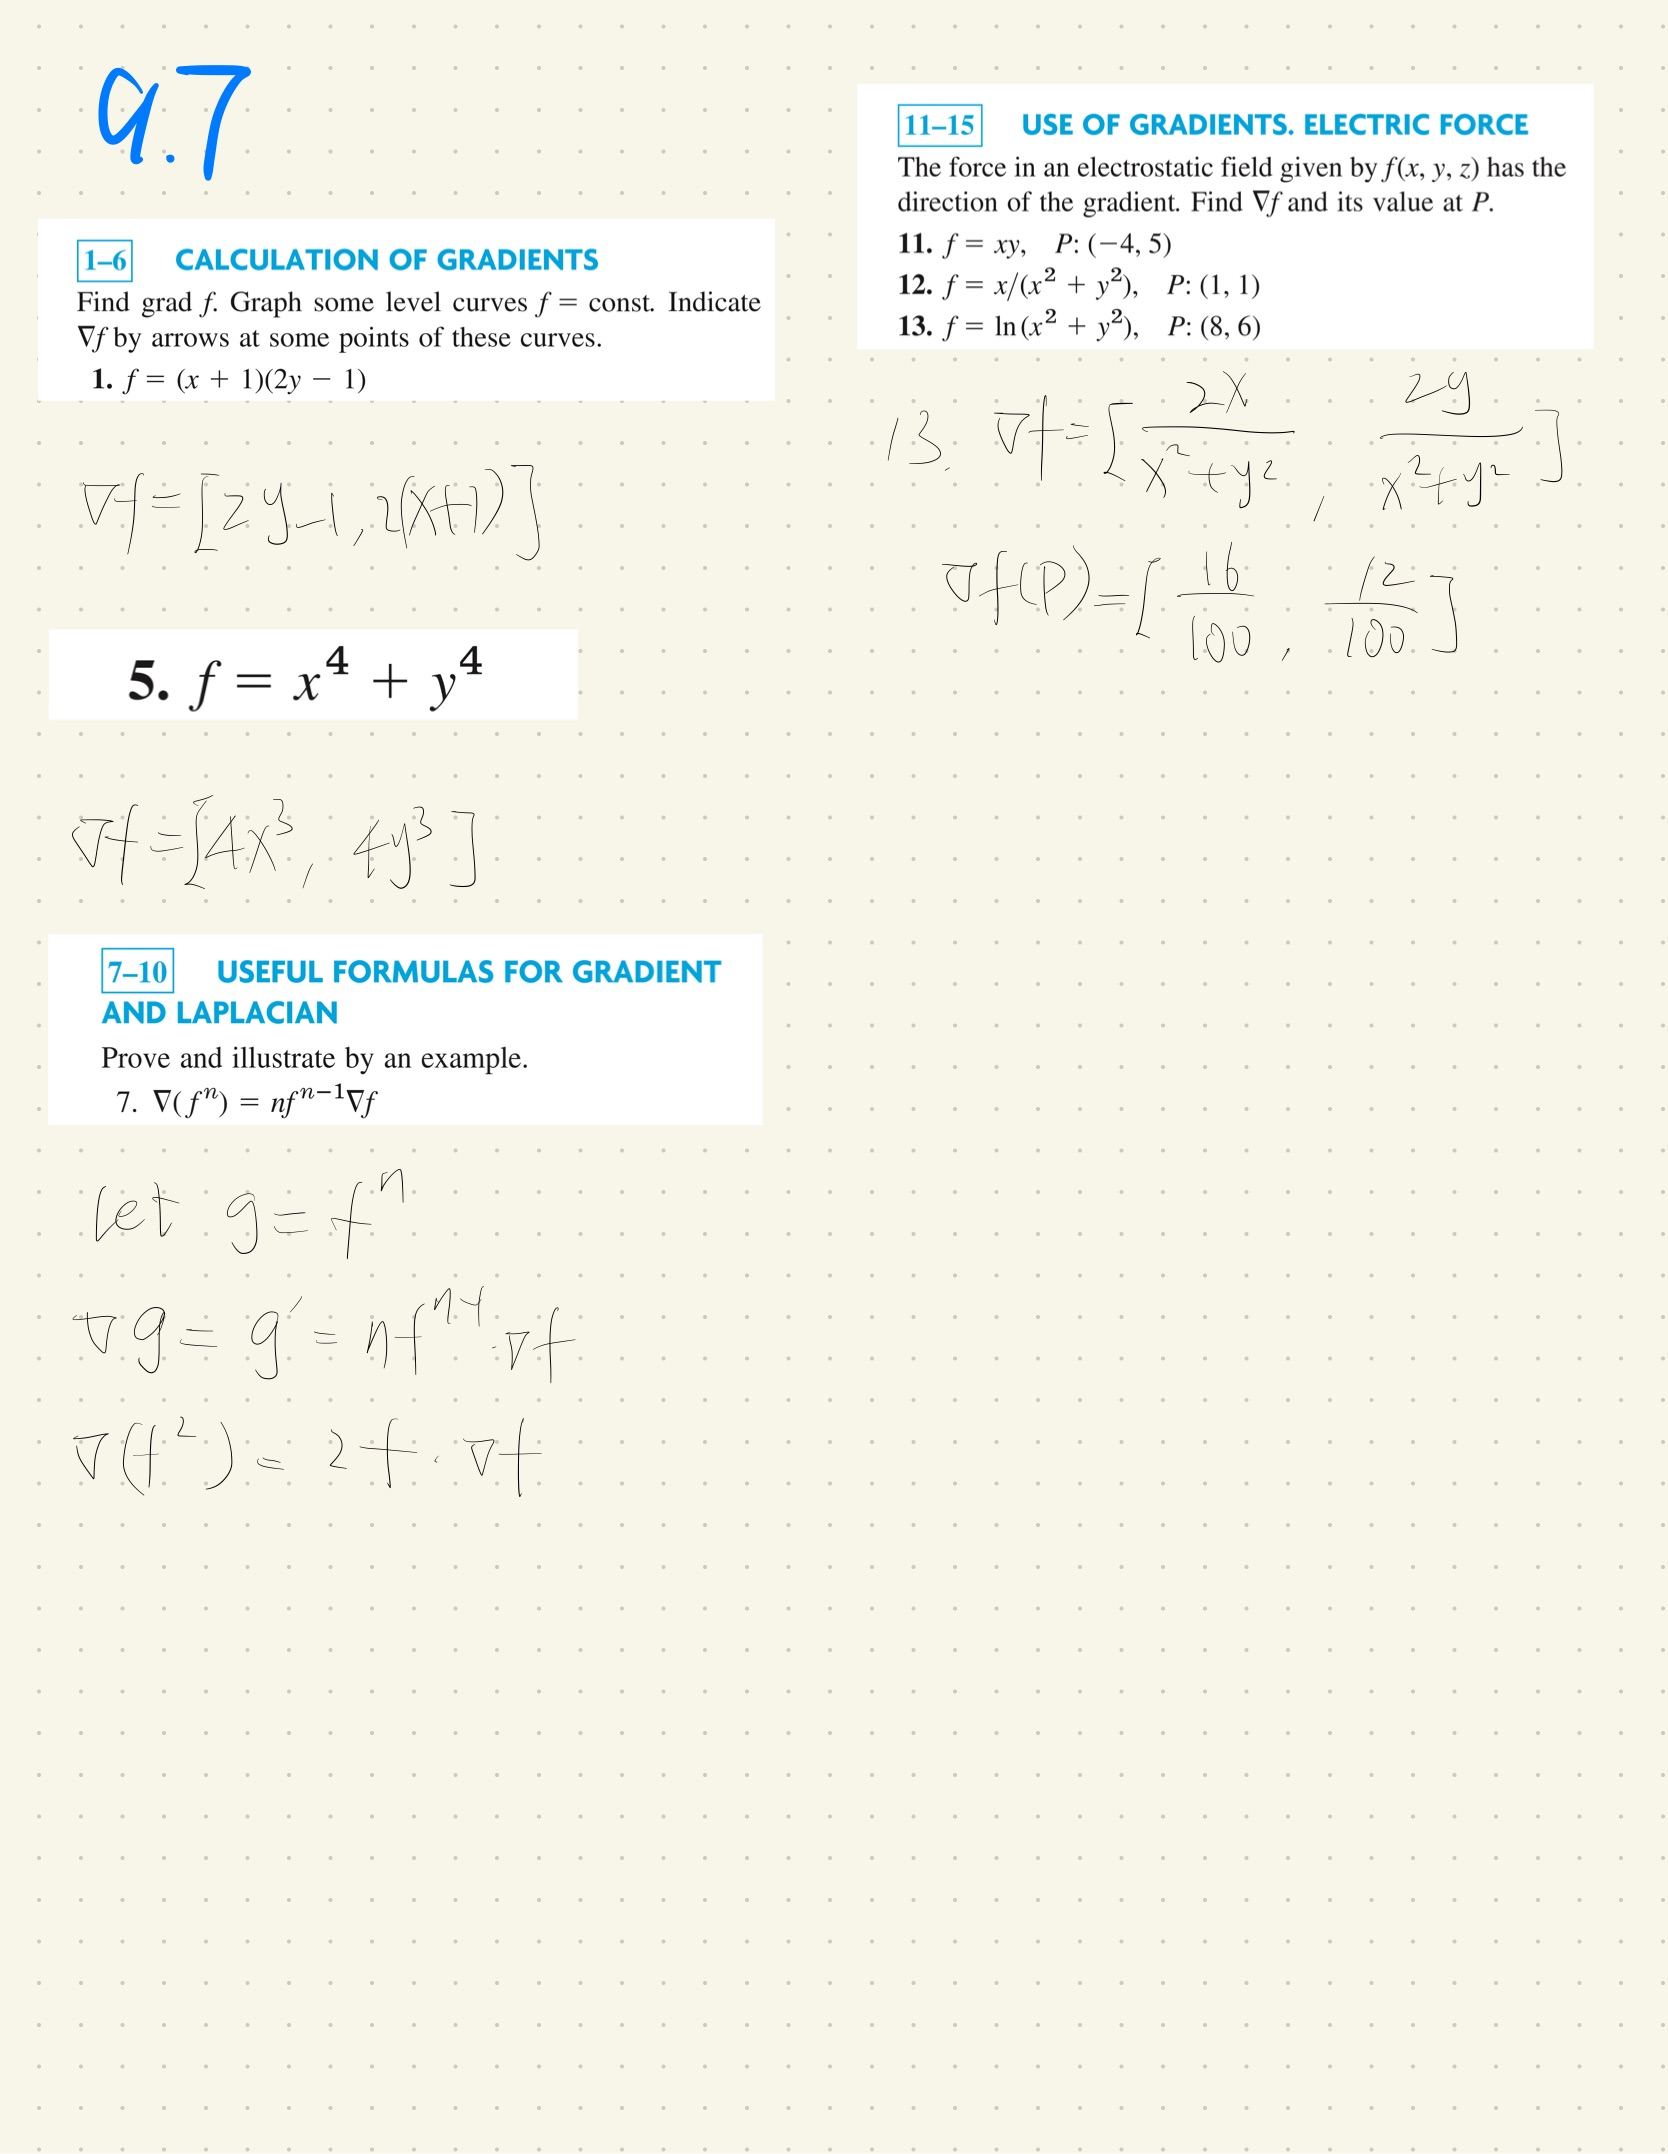 9.7
1–6 CALCULATION OF GRADIENTS
Find grad f. Graph some level curves f = const. Indicate
∇f by arrows at some points of these curves.
1. f = (x + 1)(2y − 1)
∇f = [2y−1, 2(x+1)]
5. f = x⁴ + y⁴
∇f = [4x³, 4y³]
7–10 USEFUL FORMULAS FOR GRADIENT
AND LAPLACIAN
Prove and illustrate by an example.
7. ∇(fⁿ) = nfⁿ⁻¹∇f
let g = fⁿ
∇g = g′ = nfⁿ⁻¹·∇f
∇(f²) = 2f·∇f
11–15 USE OF GRADIENTS. ELECTRIC FORCE
The force in an electrostatic field given by f(x, y, z) has the
direction of the gradient. Find ∇f and its value at P.
11. f = xy, P: (−4, 5)
12. f = x/(x² + y²), P: (1, 1)
13. f = ln(x² + y²), P: (8, 6)
13. ∇f = [2x/(x²+y²), 2y/(x²+y²)]
∇f(P) = [16/100, 12/100]